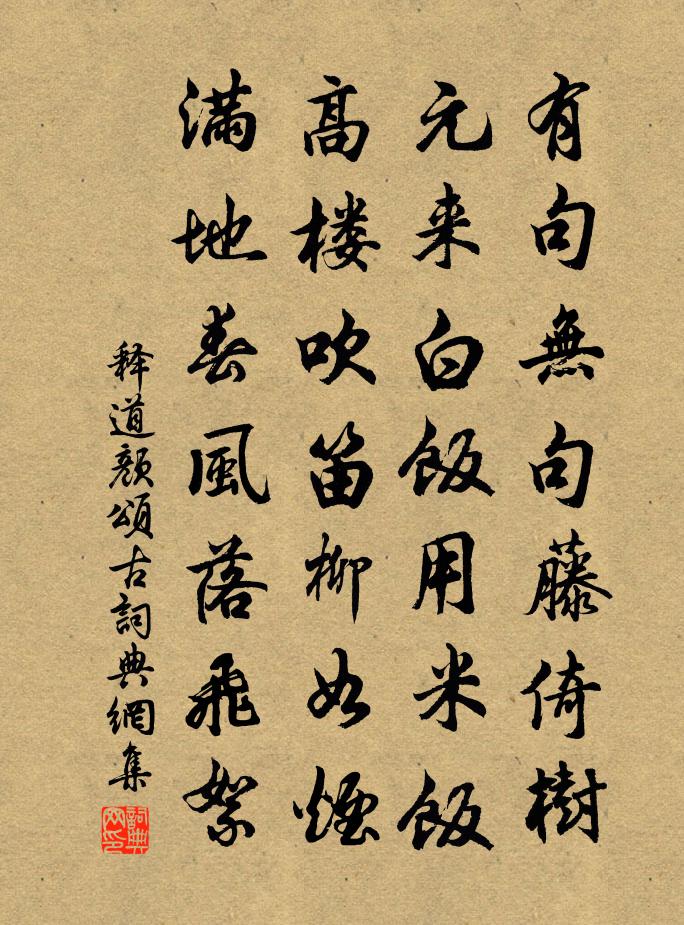 有句無句藤倚樹
元来白飯用米飯
高楼吹笛柳如煙
満地春風落飛絮
释道顏頌古詞典網集
詞典网印